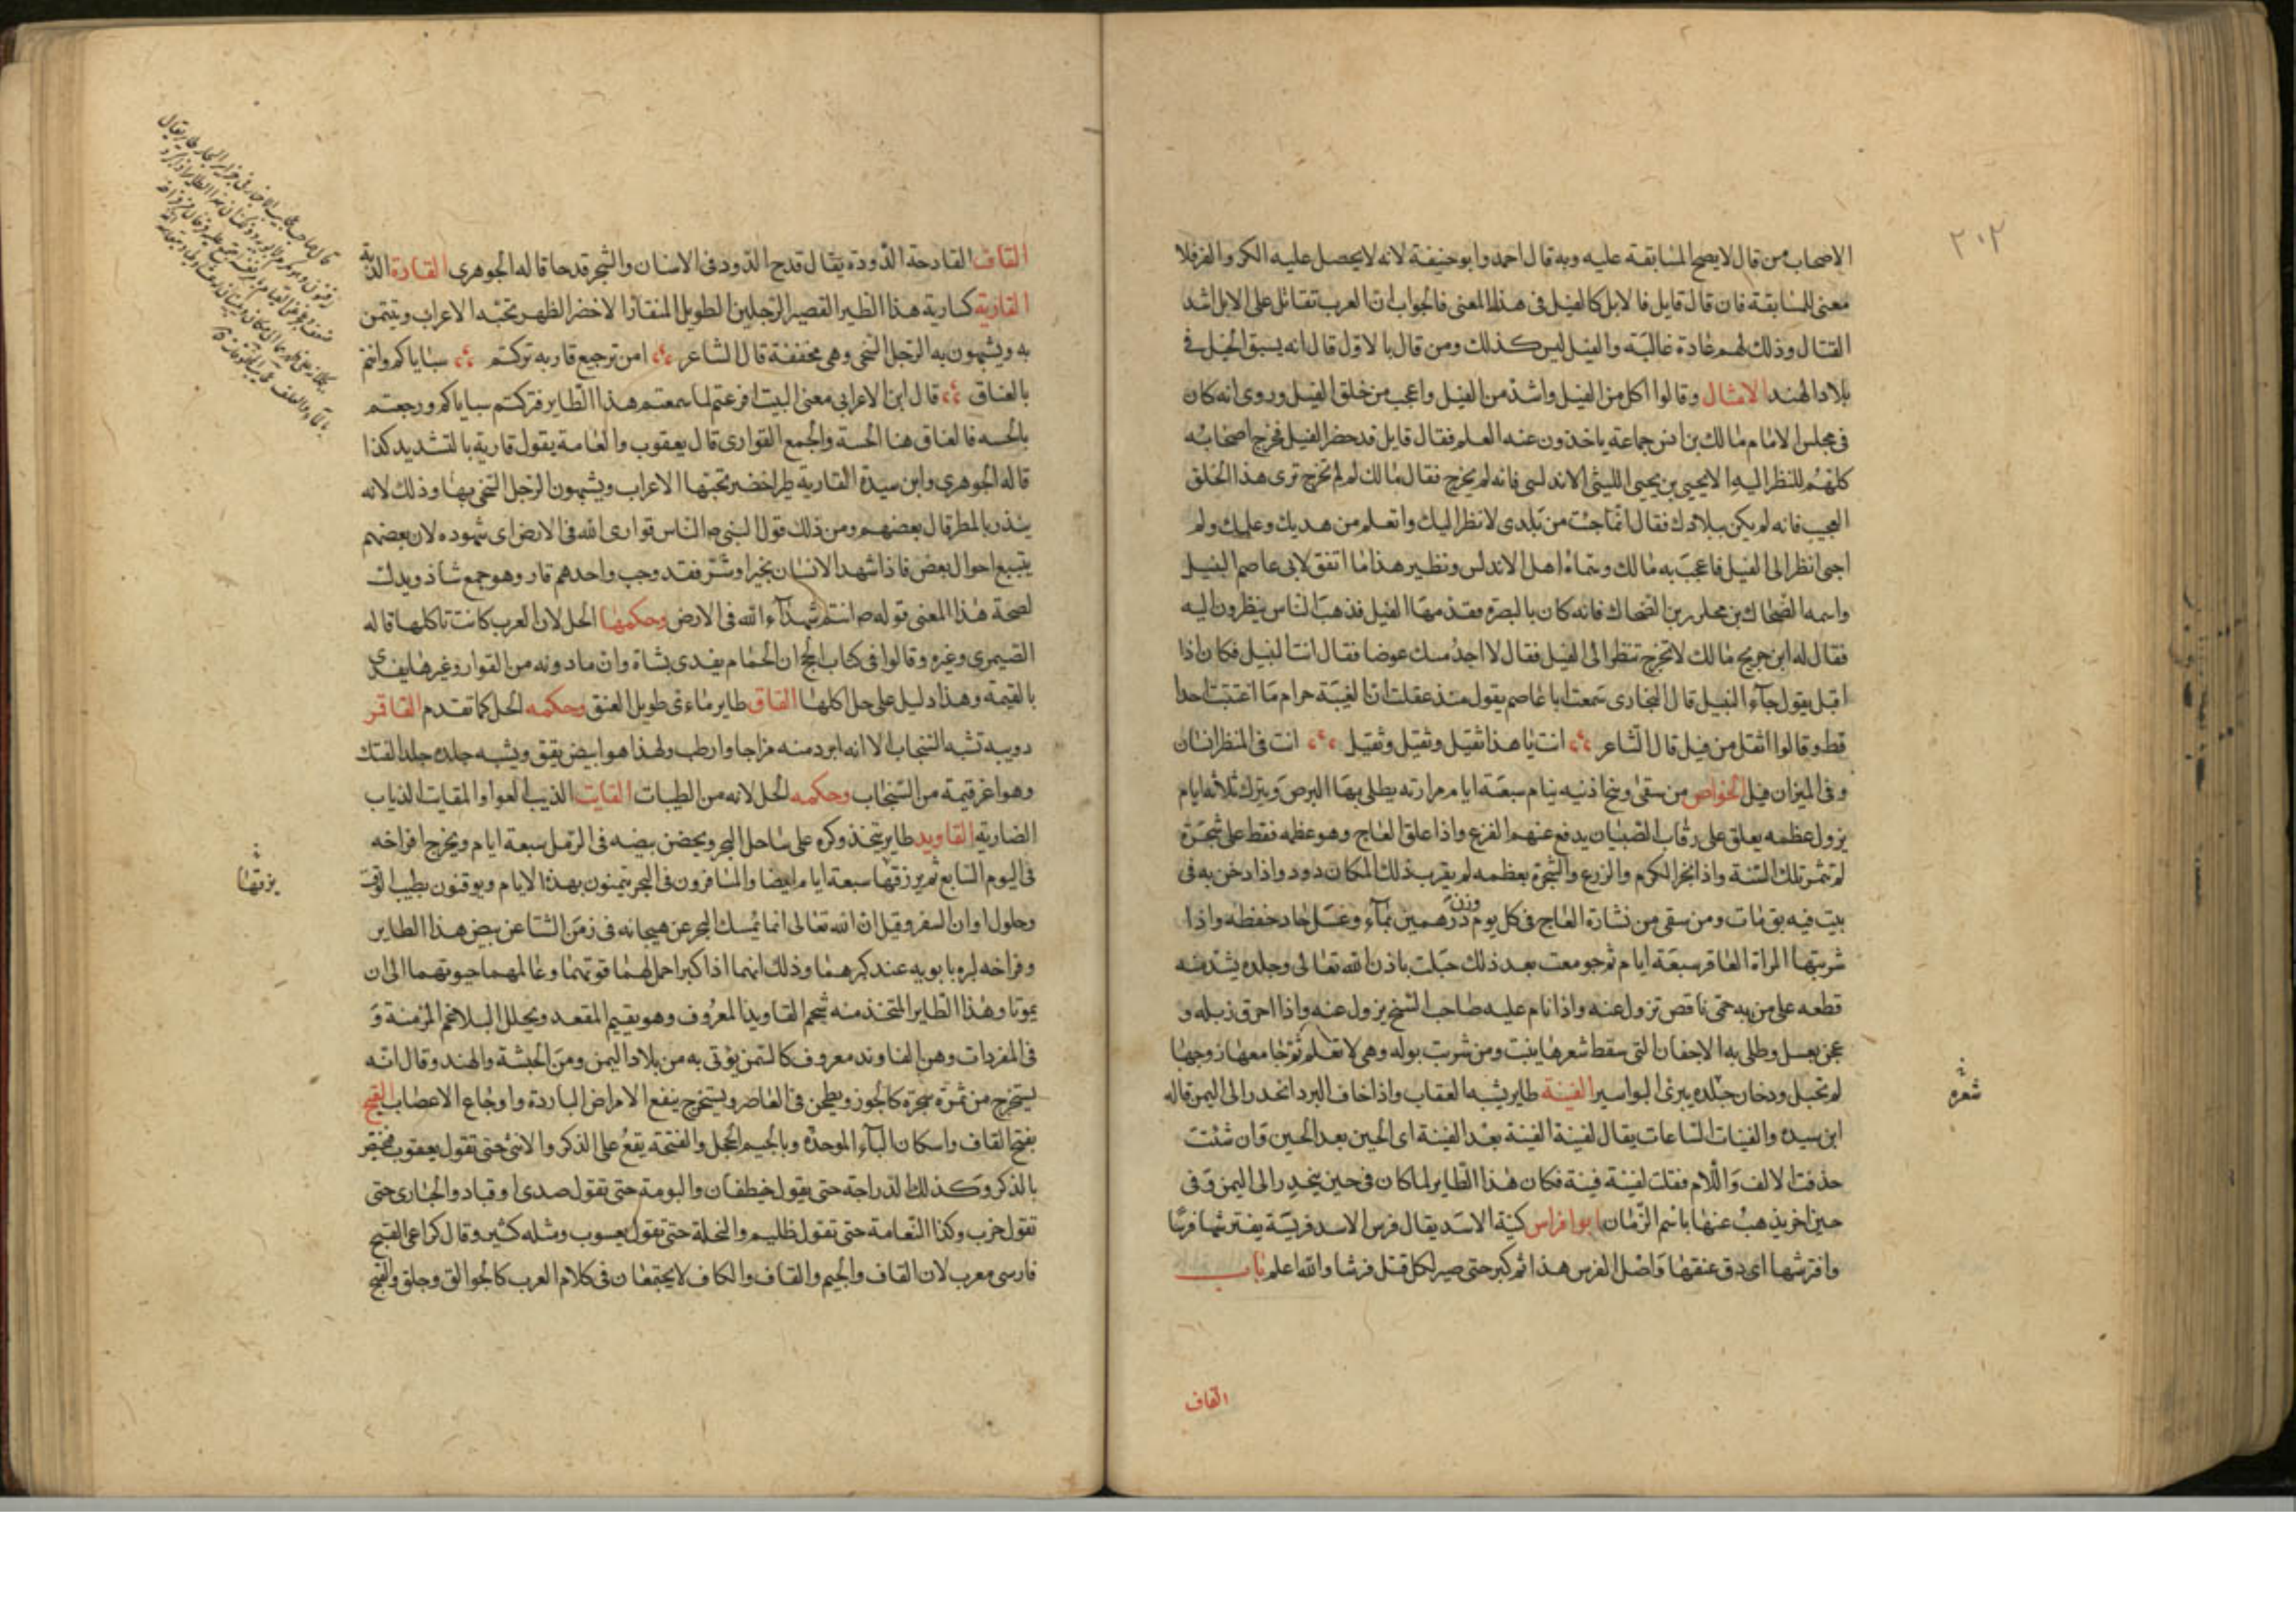 ٢٠٢
الاصحاب من قال لا يصح المسابقة عليه وبه قال احمد وابو حنيفة لانه لا يحصل عليه الكر والفر فلا
معنى للمسابقة فان قال قايل فالابل كالفيل فى هذا المعنى فالجواب ان العرب تقاتل على الابل اشد
القتال وذلك لهم عادة غالبة والفيل ليس كذلك ومن قال بالاول قال انه يسبق الخيل فى
بلاد الهند الامثال وقالوا اكل من الفيل واشد من الفيل واعجب من خلق الفيل وروى انه كان
فى مجلس الامام مالك بن انس جماعة ياخذون عنه العلم فقال قايل قد حضر الفيل فخرج اصحابه
كلهم للنظر اليه الا يحيى بن يحيى الليثى الاندلسى فانه لم يخرج فقال مالك لم لم تخرج ترى هذا الخلق
العجيب فانه لم يكن ببلادك فقال انما جئت من بلدى لانظر اليك واتعلم من هديك وعلمك ولم
اجى انظر الى الفيل فاعجب به مالك وسماه اهل الاندلس ونظير هذا ما اتفق لابى عاصم النبيل
واسمه الضحاك بن مخلد بن الضحاك فانه كان بالبصرة فقدمها الفيل فذهب الناس ينظرون اليه
فقال له ابن جريج مالك لا تخرج تنظر الى الفيل فقال لا اجد مسك عوضا فقال انت النبيل فكان اذا
اقبل يقول جآء النبيل قال البخارى سمعت ابا عاصم يقول منذ عقلت ان الغيبة حرام ما اغتبت احدا
قط وقالوا اثقل من فيل قال الشاعر انت يا هذا ثقيل وثقيل وثقيل انت فى المنظر انسان
وفى الميزان فيل الخواص من سقى وسخ اذنيه ينام سبعة ايام مرارته يطلى بها البرص ويترك ثلاثه ايام
يزول عظمه يعلق على رقاب الصبيان يدفع عنهم الفزع واذا علق العاج وهو عظمه فقط على شجرة
لم تثمر تلك السنة واذا بخر الكرم والزرع والشجرة بعظمه لم يقرب ذلك المكان دود واذا دخن به فى
بيت فيه بق مات ومن سقى من نشارة العاج فى كل يوم وزن درهمين بمآء وعسل جاد حفظه واذا
شربتها المراة العاقر سبعة ايام ثم جومعت بعد ذلك حبلت باذن الله تعالى وجلده يشد منه
قطعه على من به حمى ناقص تزول عنه واذا نام عليه صاحب التشنج يزول عنه واذا احرق زبله و
عجن بعسل وطلى به الاجفان التى سقط شعرها ينبت ومن شربت بوله وهى لا تعلم ثم جامعها زوجها
لم تحبل ودخان جلده يبرئ البواسير الفينة طاير يشبه العقاب واذا خاف البرد انحدر الى اليمن قاله
شعره
ابن سيده والفينات الساعات يقال لقيته الفينة بعد الفينة اى الحين بعد الحين وان شئت
حذفت الالف واللام فقلت لقيته فينة فكان هذا الطاير لما كان فى حين ينحدر الى اليمن وفى
حين اخر يذهب عنها باسم الزمان ابو افراس كنية الاسد يقال فرس الاسد فريسة يفترسها فرسا
وافترسها اى دق عنقها واصل الفرس هذا ثم كبر حتى صير لكل قتل فرسا والله اعلم باب
القاف
القاف القادحة الدودة يقال قدح الدود فى الاسنان والشجر قدحا قاله الجوهرى القارة الدبة
القارية كسارية هذا الطير القصير الرجلين الطويل المنقار الاخضر الظهر تحبه الاعراب وتتيمن
به ويشبهون به الرجل السخى وهى مخففة قال الشاعر امن ترجيع قارية تركتم سباياكم وابتم
بالعناق قال ابن الاعرابى معنى البيت افزعتم لما سمعتم هذا الطاير فتركتم سباياكم ورجعتم
بالخسه فالعناق هنا الخسة والجمع القوارى قال يعقوب والعامة يقول قارية بالتشديد كذا
قاله الجوهرى وابن سيدة القارية طير اخضر تحبها الاعراب ويشبهون الرجل السخى بها وذلك لانه
ينذر بالمطر قال بعضهم ومن ذلك قول النبى ص الناس قوارى الله فى الارض اى شهوده لان بعضهم
يتبع احوال بعض فاذا شهد الانسان بخير او شر فقد وجب واحدهم قار وهو جمع شاذ ويدل
لصحة هذا المعنى قوله ص انتم شهدآء الله فى الارض وحكمها الحل لان العرب كانت تاكلها قاله
الصيمرى وغيره وقالوا فى كتاب الحج ان الحمام يفدى بشاة وان ما دونه من القوار وغيرها يفدى
بالقيمة وهذا دليل على حل اكلها القاق طاير مائى طويل العنق وحكمه الحل كما تقدم القاقم
دويبه تشبه السنجاب الا انه ابرد منه مزاجا وارطب ولهذا هو ابيض يقق ويشبه جلده جلد الفنك
وهو اعز قيمة من السنجاب وحكمه الحل لانه من الطيبات القايت الذيب العوا والمقيات الذياب
الضارية القاويد طاير يتخذ وكره على ساحل البحر ويحضن بيضه فى الرمل سبعة ايام ويخرج افراخه
فى اليوم السابع ثم يرزقها سبعة ايام ايضا والمسافرون فى البحر يتيمنون بهذه الايام ويوقنون بطيب الوقت
يزقها
وحلول اوان السفر وقيل ان الله تعالى انما يمسك البحر عن هيجانه فى زمن الشتا عن بيض هذا الطاير
وفراخه لبره بابويه عند كبرهما وذلك انهما اذا كبرا حمل لهما قوتهما وعالهما حيوتهما الى ان
يموتا وهذا الطاير المتخذ منه شحم القاويد المعروف وهو يقيم المقعد ويحلل البلاغم المزمنة و
فى المفردات وهن القاوند معروف كالسمن يؤتى به من بلاد اليمن ومن الحبشة والهند وقال انه
يستخرج من ثمرة شجرة كالجوز ويطحن فى المعاصر ويستخرج ينفع الامراض الباردة واوجاع الاعصاب القبج
بفتح القاف واسكان البآء الموحدة وبالجيم الحجل والقبجة يقع على الذكر والانثى حتى تقول يعقوب فيختص
بالذكر وكذلك الدراجة حتى يقول حيقطان والبومة حتى تقول صدى او قياد والحبارى حتى
تقول خرب وكذا النعامة حتى تقول ظليم والنحلة حتى تقول يعسوب ومثله كثير وقال كراع القبج
فارسى معرب لان القاف والجيم والقاف والكاف لا يجتمعان فى كلام العرب كالجوالق وجلق والقبج